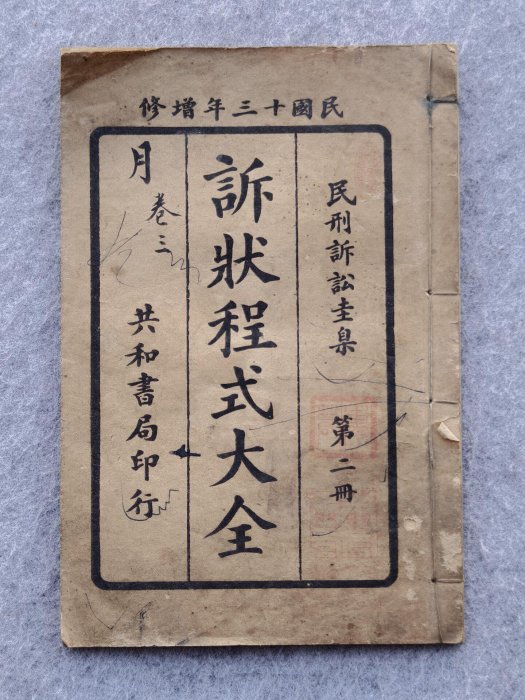 民國十三年增修
民刑訴訟圭臬 第二冊
訴狀程式大全
月 卷三
共和書局印行